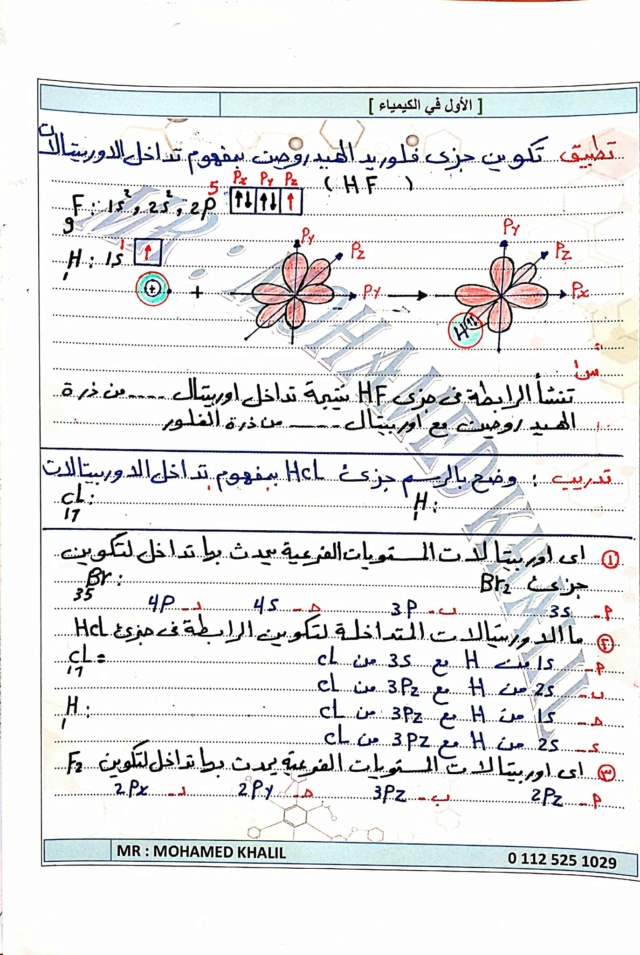 [ الأول في الكيمياء ]
تطبيق تكوين جزئ فلوريد الهيدروجين بمفهوم تداخل الاوربيتالات
( HF )
₉F : 1s², 2s², 2p⁵ Px Py Pz ↑↓ ↑↓ ↑
₁H : 1s¹ ↑
Py Pz Py
+ + →
Py Pz Px
H ↑↓
س١
تنشأ الرابطة فى جزئ HF نتيجة تداخل اوربيتال ---- من ذرة
الهيدروجين مع اوربيتال ---- من ذرة الفلور
تدريب : وضح بالرسم جزئ HCL بمفهوم تداخل الاوربيتالات
₁₇CL : ₁H :
① اى اوربيتالات المستويات الفرعية يحدث بها تداخل لتكوين
جزئ Br₂ ₃₅Br :
أ- 3s ب- 3P ج- 4s د- 4P
② ما الاوربيتالات المتداخلة لتكوين الرابطة فى جزئ HCL
أ- 1s من H مع 3s من CL ₁₇CL =
ب- 2s من H مع 3Pz من CL
ج- 1s من H مع 3Pz من CL ₁H :
د- 2s من H مع 3Pz من CL
③ اى اوربيتالات المستويات الفرعية يحدث بها تداخل لتكوين F₂
أ- 2Pz ب- 3Pz ج- 2Py د- 2Px
MR : MOHAMED KHALIL
0 112 525 1029
MR : MOHAMED KHALIL